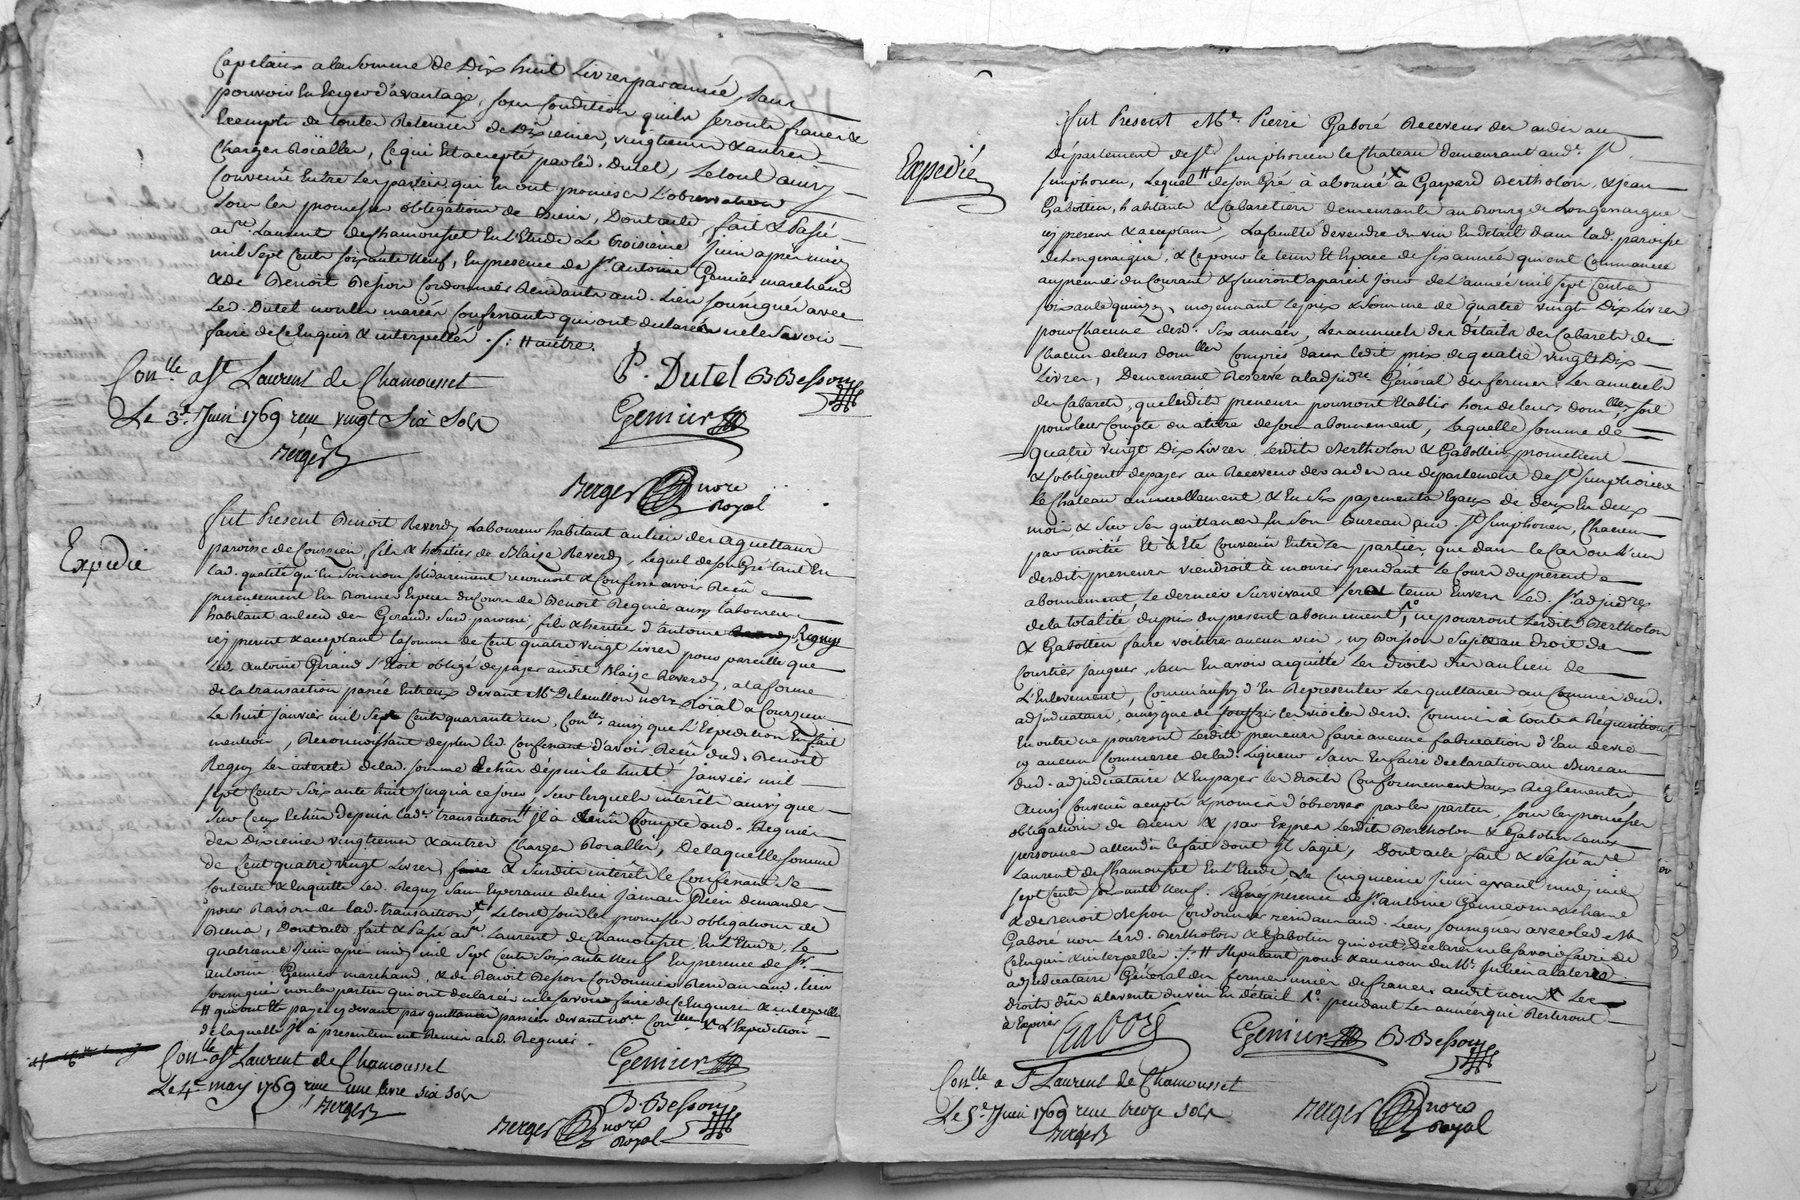 Capitaux a la somme de Dix huit Livres par année, sans
pouvoir En Exiger d'avantage, sous Condition qu'ils seront francs &
Exempts de toutes Retenues de Dixiemes, vingtiemes & autres
Charges Roialles, Ce qui Est accepté par led. Dutel, Le tout ainsy
Convenû Entre Les parties qui En ont promis L'observation
sous les promesses obligations de Biens, Dont acte, fait & Passé
aud. St Laurent de Chamousset En L'Etude Le troisieme Juin apres midy
mil sept Cents soixante neuf, En presence de Sr. antoine Genier marchand
& de Benoit Besson Cordonnier Residants aud. Lieu soussignés avec
Led. Dutel non les mariés Confessants qui ont declarés ne le savoir
faire de ce Enquis & interpellés
Conlle a St Laurent de Chamousset
Le 3e. Juin 1769 reçu vingt Six Sols
Berger
P. Dutel B Besson
Genier
Berger nore
Royal
Expedié
Fut Present Benoit Reverdy Laboureur habitant au lieu des aguettaux
paroisse de Courzieu, fils & heritier de Blaize Reverdy, Lequel de son Gré tant En
lad. qualité qu'En son nom solidairement reconnoit & Confesse avoir Reçû
presentement En Bonnes Especes du Cours de Benoit Reguis aussy laboureur
habitant au lieu des Giraud susd. paroisse, fils & heritier d'antoine Reguys
icy present & acceptant La somme de Cent quatre vingt Livres, pour pareille que
Led. antoine Giraud s'Etoit obligé de payer audit Blaize Reverdy, a la forme
de la transaction passée Entreux devant Me nore Roial a Courzieu
Le huit Janvier mil sept Cents quarante un, Conlé ainsy que L'Expedition En fait
mention, Reconnoissant de plus led Confessant d'avoir Reçû dud. Benoit
Reguy Les interets de lad. somme depuis le huit Janvier mil
sept Cents Soixante huit Jusqu'a ce jour, Sur lesquels interêts ainsy que
Sur Ceux depuis lad. transaction Il à Compte aud. Reguis
des Dixiemes vingtiemes & autres Charges Roialles, De laquelle somme
de Cent quatre vingt Livres & susdits interêts le Confessant Se
Contente & En quitte Led. Reguy Sans Esperance de lui Jamais Rien demander
pour Raison de lad. transaction, Le tout sous les promesses obligations de
Biens, Dont acte, fait & Passé aud. St Laurent de Chamousset En L'Etude Le
quatrieme Juin apres midy mil Sept Cents Soixante neuf En presence de Sr.
antoine Genier marchand, & de Benoit Besson Cordonnier Residants aud. lieu
soussignés non les parties qui ont declarées ne le savoir faire de ce Enquises & interpellées
# qui ont Eté payés cy devant par quittances passées devant nore. Conlées & L'Expedition
de laquelle Il a presentement Remis aud. Reguis.
Conlle a St Laurent de Chamousset
Le 4e may 1769 reçu une livre six sols
Berger
Genier
B. Besson
Berger nore
Royal
Expedié
Fut Present Me. Pierre Gaboré Receveur des aides au
Département de St Simphorien le Chateau demeurant aud. St
Simphorien, Lequel # de son Gré à abonné à Gaspard Bertholon, & Jean
Gabottin, habitants & Cabaretiers demeurants au Bourg de Longessaigne
icy present & acceptans, La faculté de vendre du vin En détail dans lad. paroisse
de Longessaigne, & Ce pour le tems Et Espace de six années qui ont Commencés
au premier du Courant & finiront a pareil Jour de L'année mil sept Cents
soixante quinze, moyennant le prix & Somme de quatre vingt Dix Livres
pour Chacune desd. Six années, Les annuels des détails des Cabarets de
Chacun de leurs domlles Compris dans ledit prix de quatre vingts Dix
Livres, Demeurant Reservé a l'adjudre. Général des fermes Les annuels
des Cabarets, que lesdits preneurs pourront Etablir hors de leurs domlles, soit
pour leur Compte ou a titre de sous abonnement, Laquelle somme de
quatre vingt Dix Livres Lesdits Bertholon & Gabottin promettent
& s'obligent de payer au Receveur des aides au département de St Simphorien
le Chateau annuellement & En Six payements Egaux de deux En deux
mois & Sur Ses quittances En Son Bureau aud. St Simphorien, Chacun
par moitié Et à Eté Convenû Entre les parties, que dans le Cas ou L'un
desdits preneurs viendroit à mourir pendant le Cours du present
abonnement Le dernier Survivant sera tenu Envers Led. Sr adjudre
de la totalité du prix du present abonnement, ne pourront Lesdits Bertholon
& Gabottin faire voiturer aucun vin, ny Boisson Sujette au droit de
Courtier Jaugeur, sans En avoir acquitté Les droits aux lieu de
L'Enlevement, Comm'aussy d'En Representer Les quittances aux Commis dud.
adjudicataire, ainsy que de Souffrir les visites desd. Commis à toutes Réquisitions
En outre ne pourront Lesdits preneurs faire aucune fabrication d'Eau de vie
ny aucun Commerce de lad. Liqueur Sans En faire declaration au Bureau
dud. adjudicataire & En payer les droits Conformement aux Reglements
ainsy Convenû accepté & promis d'observer par les parties, sous les promesses
obligations de Biens & par Exprès Lesdits Bertholon & Gabotin Leurs
personnes attendû le fait dont Il S'agit, Dont acte fait & Passé aud. St
Laurent de Chamousset En L'Etude, Le Cinquieme Juin avant midy mil
sept Cents soixante neuf. En presence de Sr. antoine Genier marchand
& de Benoit Besson Cordonnier residans aud. Lieu, soussignés avec led. Me
Gaboré non Lesd. Bertholon & Gabotin qui ont Declarés ne le savoir faire de
Ce Enquis & interpellés. # Stipulant pour & au nom du Me. Julien alaterre
adjudicataire Général des fermes unies de france, audit nom X Les
droits dûs a la vente du vin En détail pendant Les années qui Resteront
à Expirer
Gaboré
Genier B. Besson
Conlle a St Laurent de Chamousset
Le 5e. Juin 1769 reçu treize sols
Berger
Berger nore
Royal